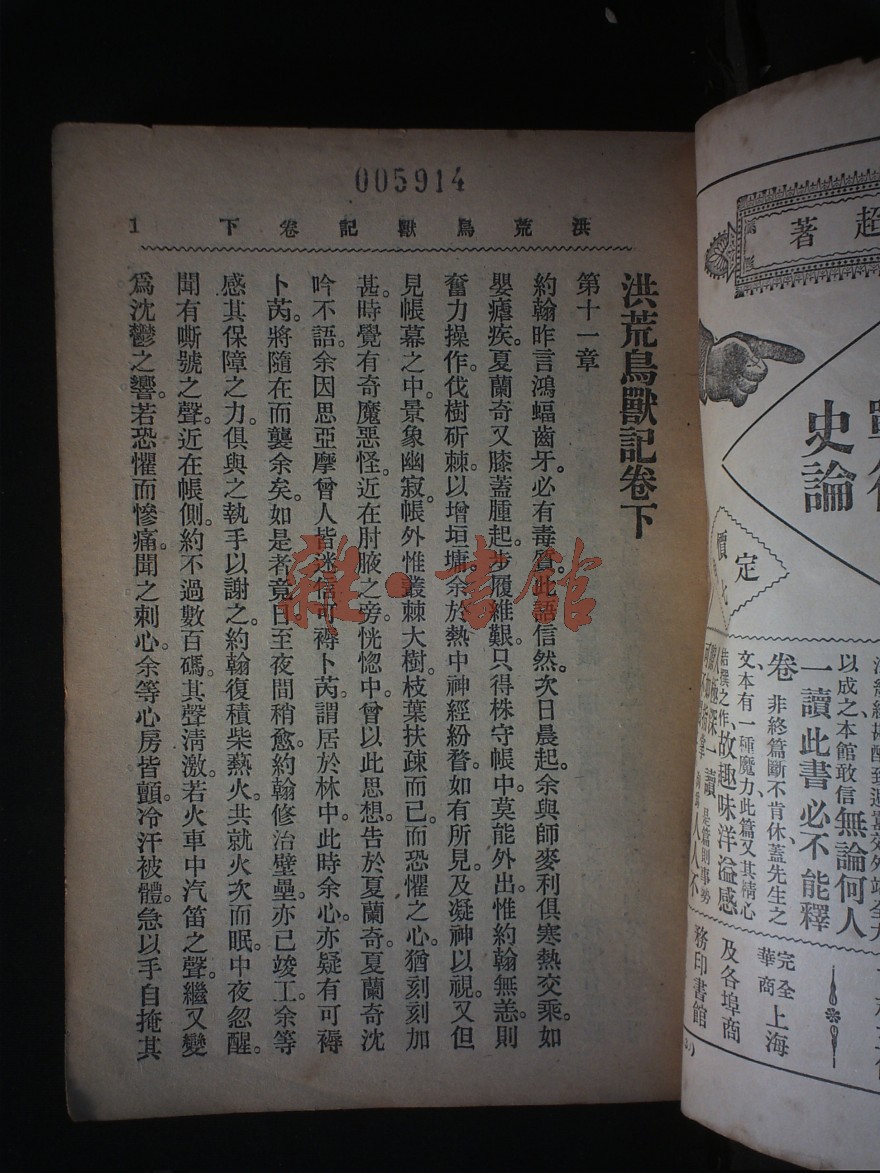 005914
洪荒鳥獸記卷下 1
洪荒鳥獸記卷下
第十一章
約翰昨言鴻蝠齒牙。必有毒質。此語信然。次日晨起。余與師麥利俱寒熱交乘。如
嬰瘧疾。夏蘭奇又膝蓋腫起。步履維艱。只得株守帳中。莫能外出。惟約翰無恙。則
奮力操作。伐樹斫棘。以增垣墉。余於熱中神經紛瞀。如有所見。及凝神以視。又但
見帳幕之中。景象幽寂。帳外惟叢棘大樹。枝葉扶疎而已。而恐懼之心。猶刻刻加
甚。時覺有奇魔惡怪。近在肘腋之旁。恍惚中。曾以此思想。告於夏蘭奇。夏蘭奇沈
吟不語。余因思亞摩曾人皆迷信可褥卜芮。謂居於林中。此時余心。亦疑有可褥
卜芮。將隨在而襲余矣。如是者竟日。至夜間稍愈。約翰修治壁壘。亦已竣工。余等
感其保障之力。俱與之執手以謝之。約翰復積柴爇火。共就火次而眠。中夜忽醒。
聞有嘶號之聲。近在帳側。約不過數百碼。其聲清激。若火車中汽笛之聲。繼又變
爲沈鬱之響。若恐懼而慘痛。聞之刺心。余等心房皆顫。冷汗被體。急以手自掩其
雜·書館
超著
史論
定價
以成之本館敢信無論何人
一讀此書必不能釋
卷非終篇斷不肯休蓋先生之
文本有一種魔力此篇又其精心
結撰之作故趣味洋溢感
完全華商
上海
及各埠商
務印書館